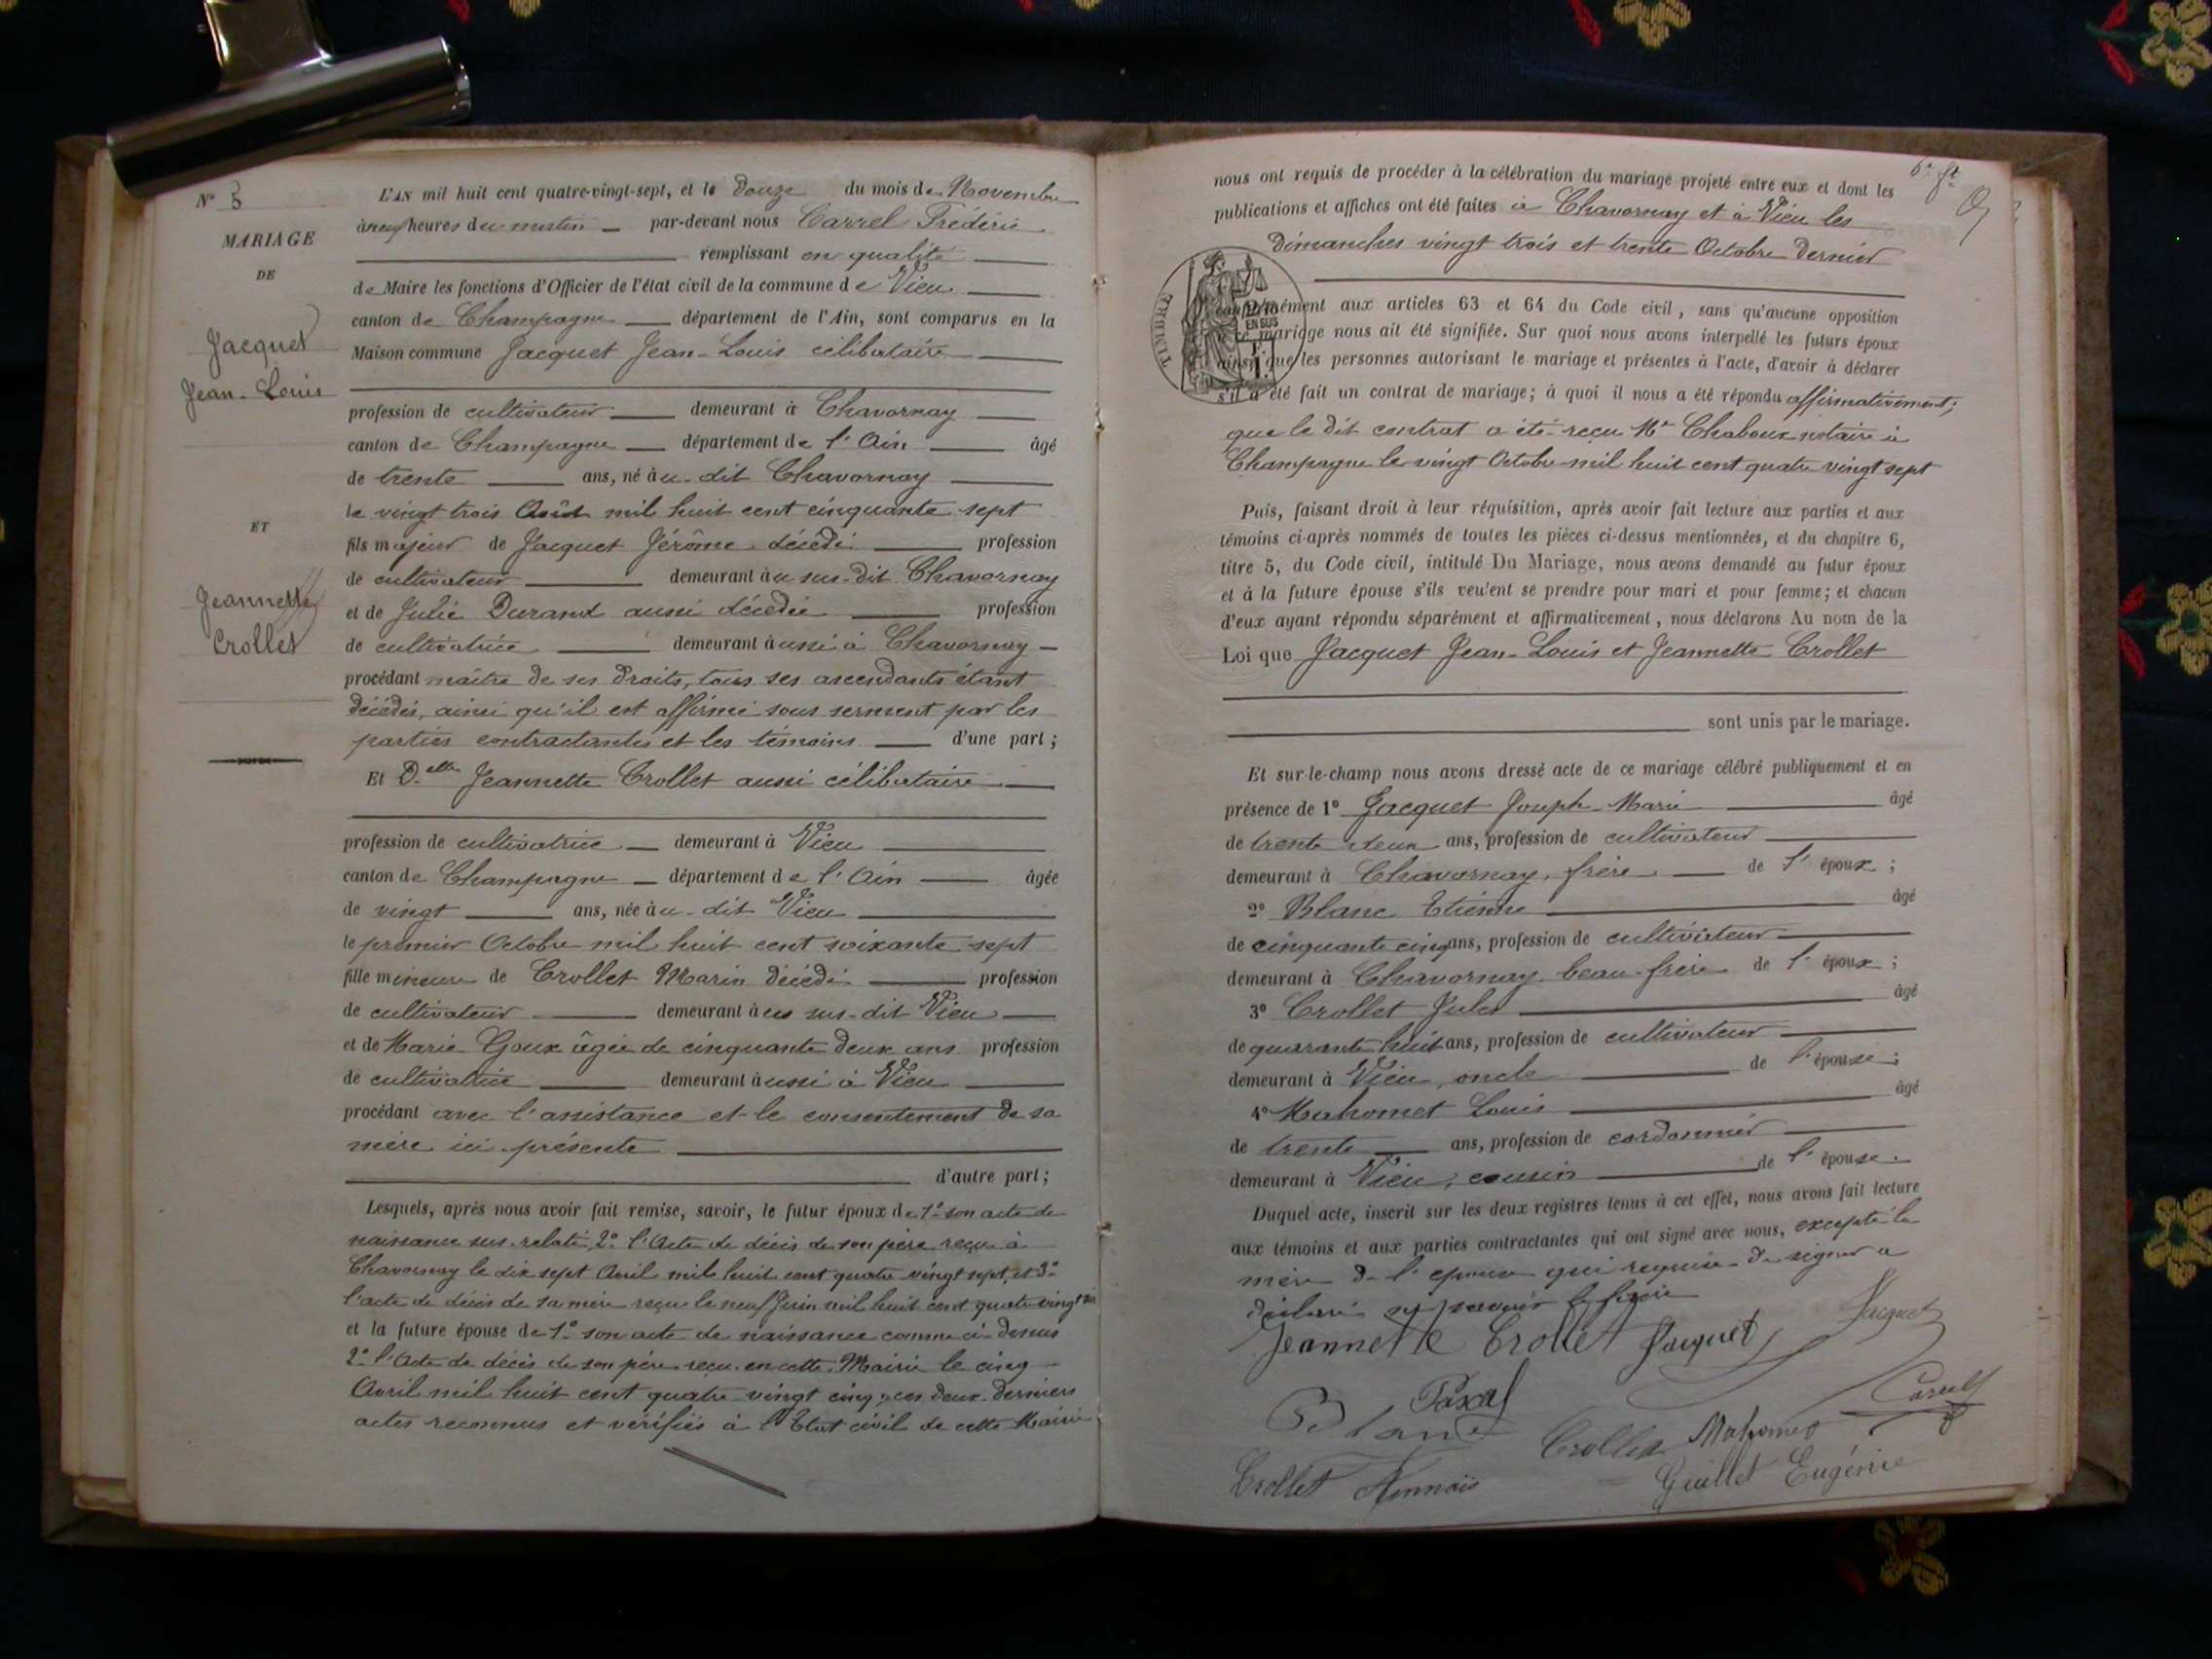 N° 3
MARIAGE
DE
Jacquet
Jean-Louis
ET
Jeannette
Crollet
L'AN mil huit cent quatre-vingt-sept, et le douze du mois de Novembre
à neuf heures du matin par-devant nous Carrel Frédéric
remplissant en qualité
de Maire les fonctions d'Officier de l'état civil de la commune de Vieu
canton de Champagne département de l'Ain, sont comparus en la
Maison commune Jacquet Jean-Louis célibataire
profession de cultivateur demeurant à Chavornay
canton de Champagne département de l'Ain âgé
de trente ans, né au dit Chavornay
le vingt trois Août mil huit cent cinquante sept
fils majeur de Jacquet Jérôme décédé profession
de cultivateur demeurant au sus-dit Chavornay
et de Julie Durand aussi décédée profession
de cultivatrice demeurant aussi à Chavornay
procédant maître de ses droits, tous ses ascendants étant
décédés, ainsi qu'il est affirmé sous serment par les
parties contractantes et les témoins d'une part;
Et D.elle Jeannette Crollet aussi célibataire
profession de cultivatrice demeurant à Vieu
canton de Champagne département de l'Ain âgée
de vingt ans, née au dit Vieu
le premier Octobre mil huit cent soixante sept
fille mineure de Crollet Marin décédé profession
de cultivateur demeurant au sus-dit Vieu
et de Marie Goux âgée de cinquante deux ans profession
de cultivatrice demeurant aussi à Vieu
procédant avec l'assistance et le consentement de sa
mère ici présente
d'autre part;
Lesquels, après nous avoir fait remise, savoir, le futur époux de 1° son acte de
naissance sus-relaté, 2° l'Acte de décès de son père reçu à
Chavornay le dix sept Avril mil huit cent quatre vingt sept, et 3°
l'acte de décès de sa mère reçu le neuf Juin mil huit cent quatre vingt six
et la future épouse de 1° son acte de naissance comme ci-dessus
2° l'Acte de décès de son père reçu en cette Mairie le cinq
Avril mil huit cent quatre vingt cinq; ces deux derniers
actes reconnus et vérifiés à l'Etat civil de cette Mairie
nous ont requis de procéder à la célébration du mariage projeté entre eux et dont les
publications et affiches ont été faites à Chavornay et à Vieu les
dimanches vingt trois et trente Octobre dernier
TIMBRE
EN SUS
conformément aux articles 63 et 64 du Code civil, sans qu'aucune opposition
à ce mariage nous ait été signifiée. Sur quoi nous avons interpellé les futurs époux
ainsi que les personnes autorisant le mariage et présentes à l'acte, d'avoir à déclarer
s'il a été fait un contrat de mariage; à quoi il nous a été répondu affirmativement;
que le dit contrat a été reçu Me Chaboux notaire à
Champagne le vingt Octobre mil huit cent quatre vingt sept
Puis, faisant droit à leur réquisition, après avoir fait lecture aux parties et aux
témoins ci-après nommés de toutes les pièces ci-dessus mentionnées, et du chapitre 6,
titre 5, du Code civil, intitulé Du Mariage, nous avons demandé au futur époux
et à la future épouse s'ils veulent se prendre pour mari et pour femme; et chacun
d'eux ayant répondu séparément et affirmativement, nous déclarons Au nom de la
Loi que Jacquet Jean-Louis et Jeannette Crollet
sont unis par le mariage.
Et sur-le-champ nous avons dressé acte de ce mariage célébré publiquement et en
présence de 1° Jacquet Joseph Marie âgé
de trente deux ans, profession de cultivateur
demeurant à Chavornay, frère de l'époux;
2° Blanc Etienne âgé
de cinquante cinq ans, profession de cultivateur
demeurant à Chavornay beau-frère de l'époux;
3° Crollet Jules âgé
de quarante huit ans, profession de cultivateur
demeurant à Vieu, oncle de l'épouse;
4° Mahomet Louis âgé
de trente ans, profession de cordonnier
demeurant à Vieu, cousin de l'épouse.
Duquel acte, inscrit sur les deux registres tenus à cet effet, nous avons fait lecture
aux témoins et aux parties contractantes qui ont signé avec nous, excepté la
mère de l'épouse qui requise de signer a
déclaré ne savoir le faire
Jeannette Crollet Jacquet Jacquet
Blanc Carrel
Crollet Mahomet
Crollet Guillet Eugénie